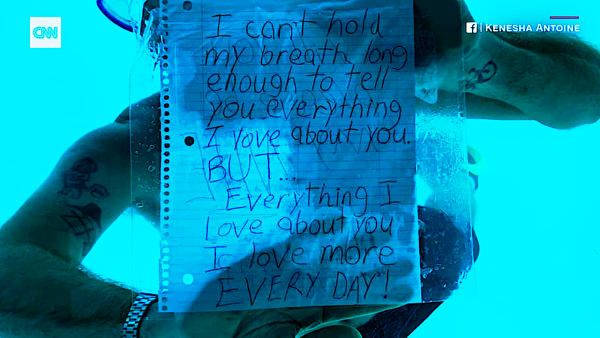 CNN
f | KENESHA ANTOINE
I cant hold
my breath long
enough to tell
you everything
I love about you.
BUT...
Everything I
Love about you
I love more
EVERY DAY!